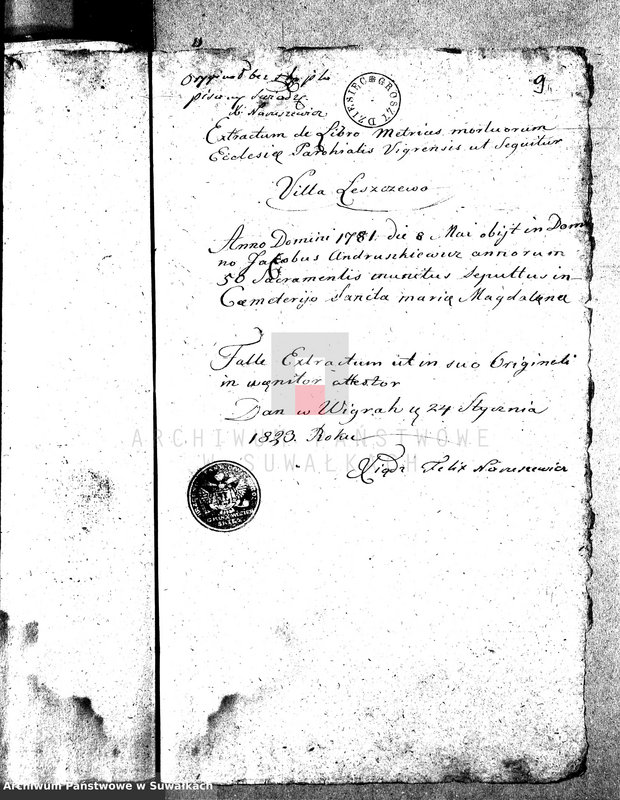 9
DZIESIĘC GROSZY
Extractum de Libro Metrices mortuorum
Ecclesię Parohialis Vigrensis ut Sequitur
Villa Leszczewo
Anno Domini 1781. die 8 Mai obijt in Domi
no Jakobus Andruszkiewicz annorum
50 Sacramentis munitus Sepultus in
Cæmeterijo Sancta maria Magdalena
Talle Extractum ut in suo Originali
in wenitor attestor
Dan w Wigrah ę 24 Stycznia
1823. Roku
Xiądz Felix Naruszewicz
ARCHIWUM PAŃSTWOWE
W SUWAŁKACH
Archiwum Państwowe w Suwałkach